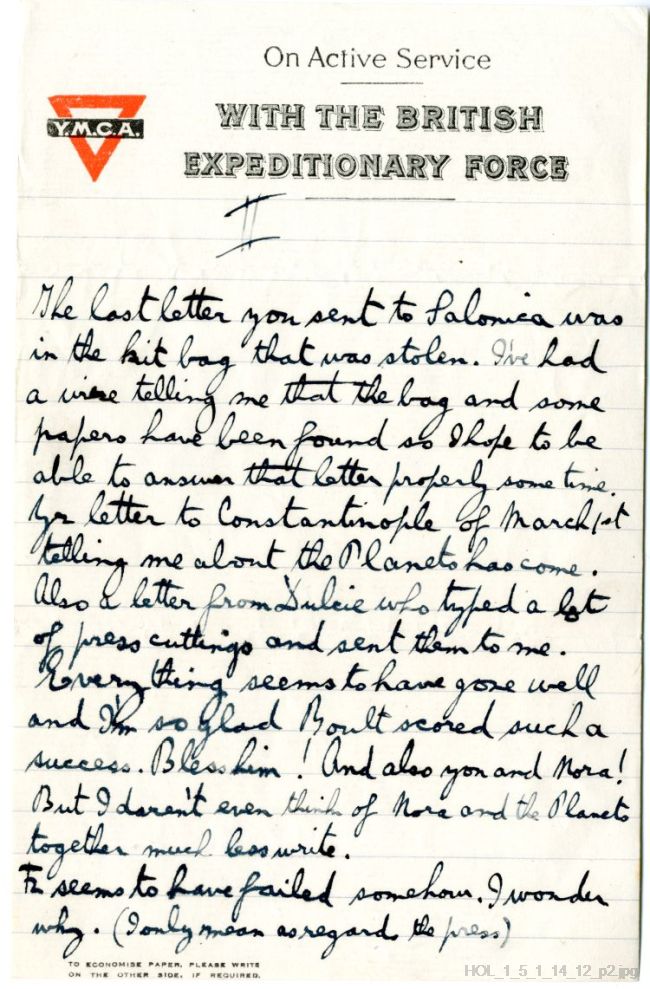 On Active Service
WITH THE BRITISH
Y.M.C.A.
EXPEDITIONARY FORCE
II
The last letter you sent to Salonica was
in the kit bag that was stolen. I've had
a wire telling me that the bag and some
papers have been found so I hope to be
able to answer that letter properly some time.
Yr letter to Constantinople of March 1st
telling me about the Planets has come.
Also a letter from Dulcie who typed a lot
of press cuttings and sent them to me.
Everything seems to have gone well
and I'm so glad Boult scored such a
success. Bless him! And also you and Nora!
But I daren't even think of Nora and the Planets
together much less write.
seems to have failed somehow. I wonder
why. (I only mean as regards the press)
TO ECONOMISE PAPER, PLEASE WRITE
ON THE OTHER SIDE, IF REQUIRED.
HOL_1_5_1_14_12_p2.jpg